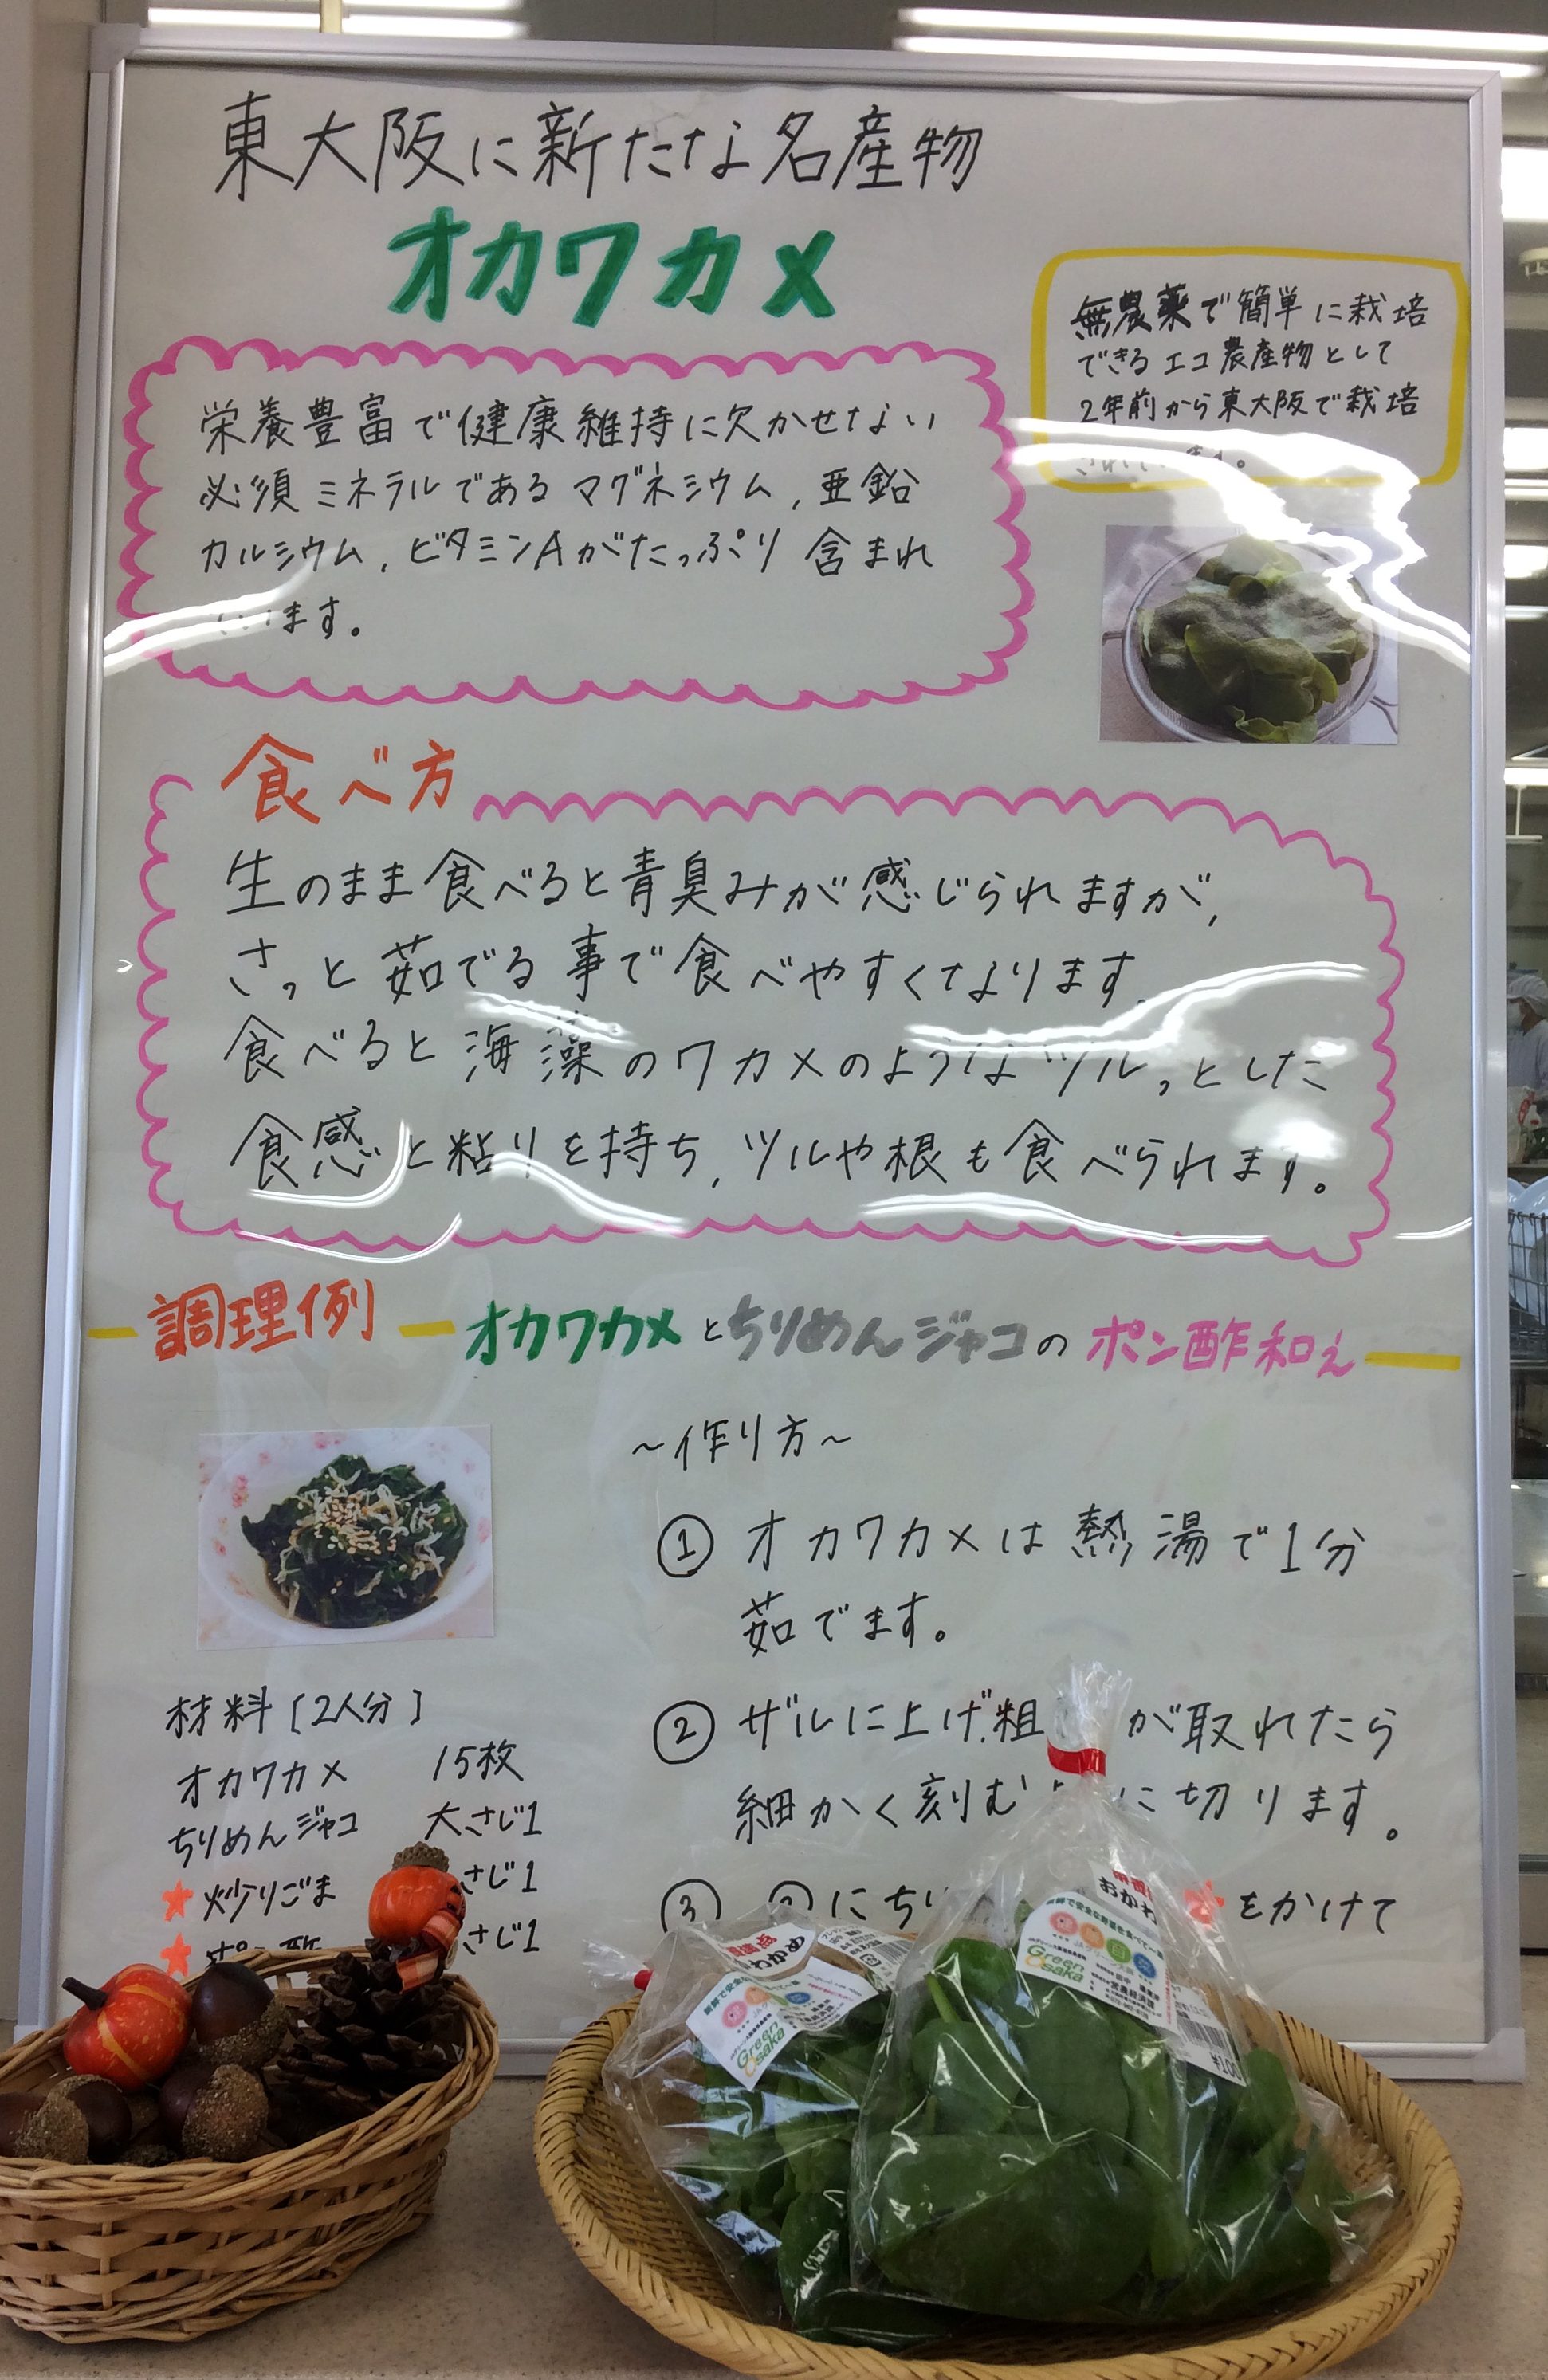 東大阪に新たな名産物
オカワカメ
無農薬で簡単に栽培
できるエコ農産物として
2年前から東大阪で栽培
されています。
栄養豊富で健康維持に欠かせない
必須ミネラルであるマグネシウム,亜鉛
カルシウム,ビタミンAがたっぷり含まれ
います。
食べ方
生のまま食べると青臭みが感じられますが,
さっと茹でる事で食べやすくなります.
食べると海藻のワカメのようなツルっとした
食感と粘りを持ち,ツルや根も食べられます。
調理例
オカワカメとちりめんジャコのポン酢和え
～作り方～
① オカワカメは熱湯で1分
茹でます。
② ザルに上げ,粗 が取れたら
細かく刻む に切ります。
③ ②にちり をかけて
材料[2人分]
オカワカメ 15枚
ちりめんジャコ 大さじ1
★炒りごま さじ1
★ポン酢 さじ1
おかわ
Green
Osaka
わかめ
Green
Osaka
¥100